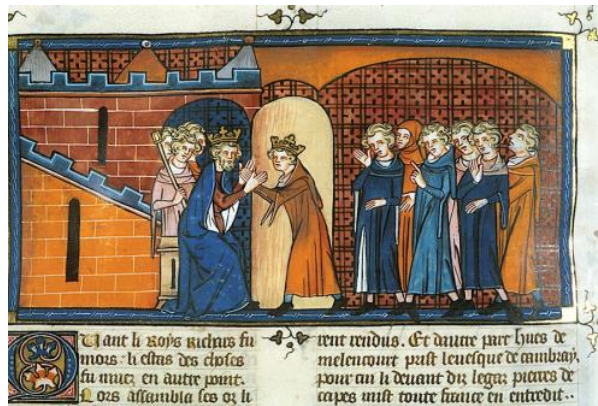 Quant li Roys Richars fu
mors · li estas des choses
fu muez en autre point.
Lors assambla ses oz li
rent rendus. Et dautre part hues de
melencourt prist leuesque de cambray,
pour cui li deuant diz legaz pierres de
capes mist toute france en entredit··